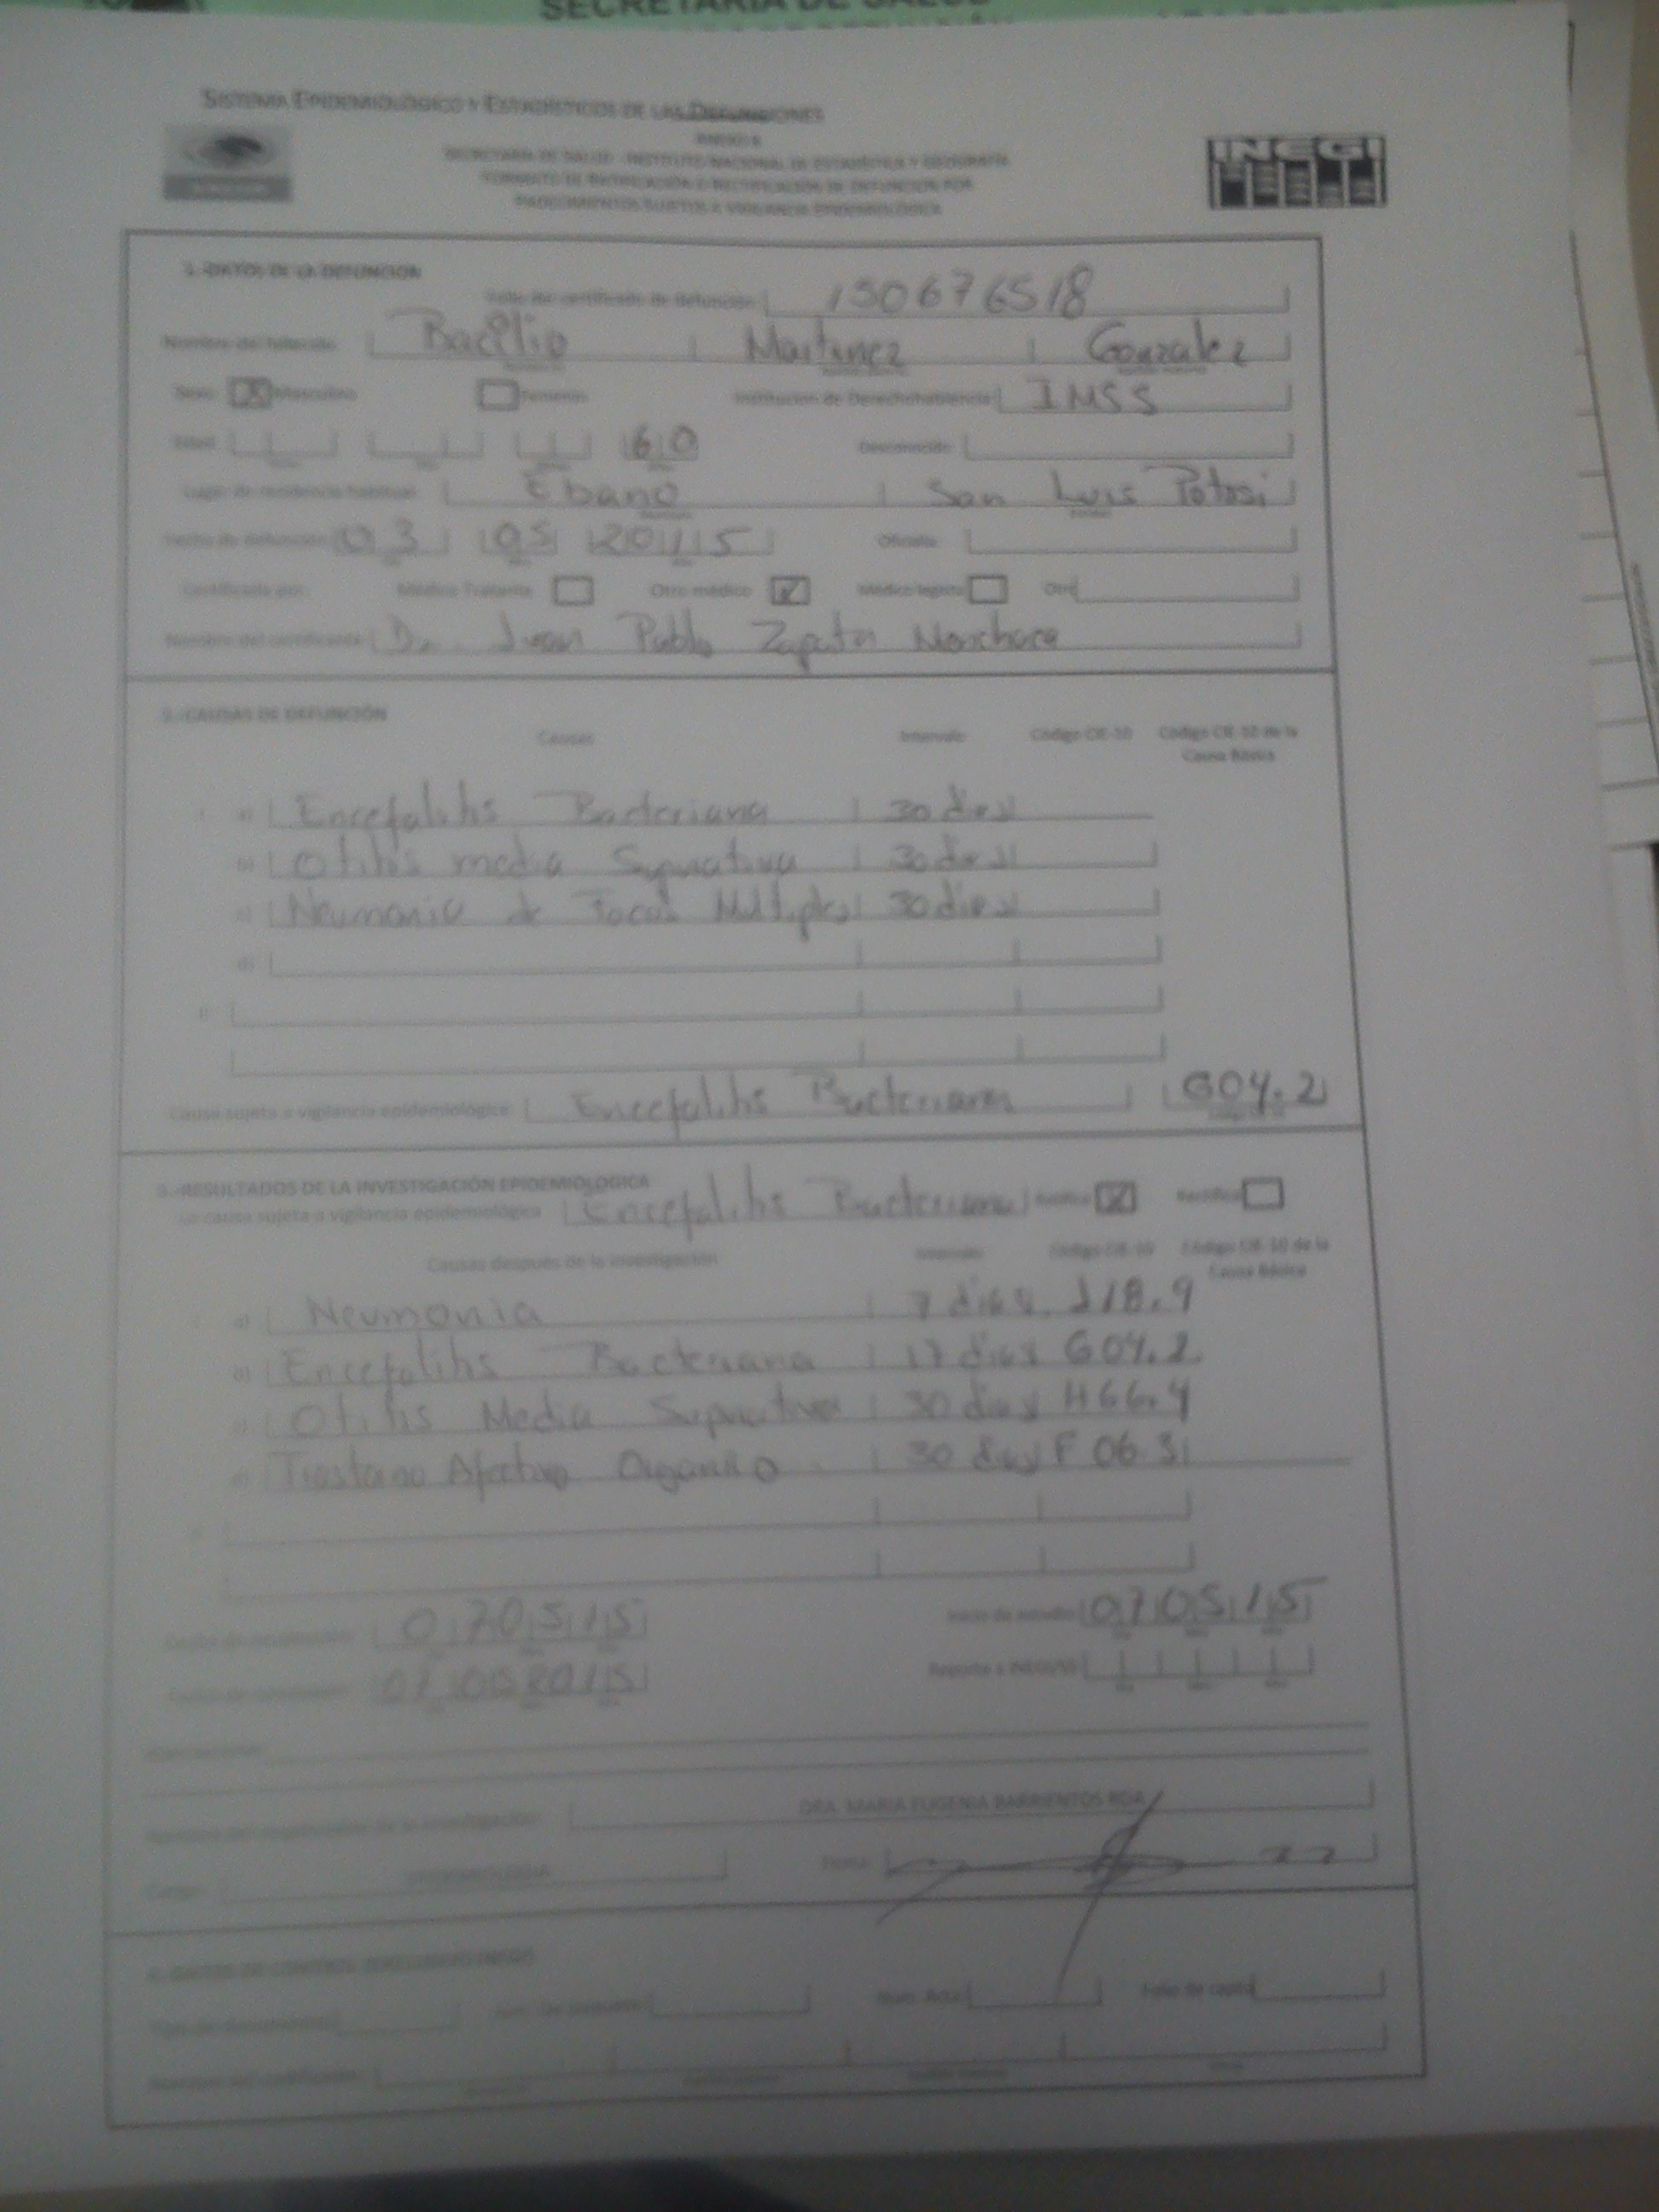 SECRETARIA DE SALUD
SISTEMA EPIDEMIOLÓGICO Y ESTADÍSTICOS DE LAS DEFUNCIONES
SECRETARÍA DE SALUD - INSTITUTO NACIONAL DE ESTADÍSTICA Y GEOGRAFÍA
FORMATO DE RATIFICACIÓN O RECTIFICACIÓN DE DEFUNCION POR
PADECIMIENTOS SUJETOS A VIGILANCIA EPIDEMIOLÓGICA
INEGI
1.-DATOS DE LA DEFUNCION
Folio del certificado de defunción 150676518
Nombre del fallecido Martinez Gonzalez
Sexo Masculino Femenino Institucion de Derechohabiencia IMSS
Edad 60 Desconocido
Lugar de residencia habitual Ebano San Luis Potosi
Fecha de defunción 03 05 2015 Oficialía
Certificada por: Médico Tratante Otro médico Médico legista Otro
Nombre del certificante Dr. Juan Pablo Zapata
2.-CAUSAS DE DEFUNCIÓN
Causas Intervalo Código CIE-10 Código CIE-10 de la
Causa Básica
a) Encefalitis Bacteriana 30 dias
b) Otitis media Supurativa 30 dias
c) Neumonia de Focos Multiples 30 dias
d)
Causa sujeta a vigilancia epidemiológica Encefalitis Bacteriana G04.2
3.-RESULTADOS DE LA INVESTIGACIÓN EPIDEMIOLOGICA
La causa sujeta a vigilancia epidemiológica Encefalitis Bacteriana Ratifica Rectifica
Causas después de la investigación Intervalo Código CIE-10 Código CIE-10 de la
Causa Básica
a) Neumonia 7 dias J18.9
b) Encefalitis Bacteriana 17 dias G04.2
c) Otitis Media Supurativa 30 dias H66.4
d) Trastorno Afectivo Organico 30 dias F 06 3
070515 Inicio de estudio 070515
Reporte a
DRA. MARIA EUGENIA BARRIENTOS ROA
Cargo: Firma
Núm. Acta